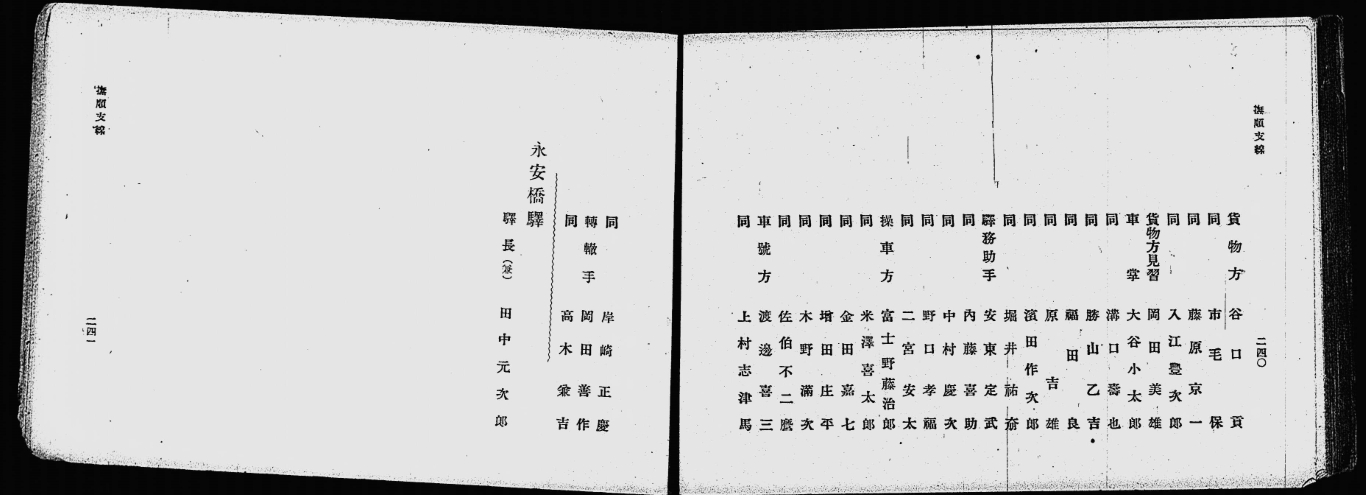 撫順支線
二四〇
貨物方 谷口貢
同 市毛保
同 藤原京一
同 入江豊次郎
貨物方見習 岡田美雄
車掌 大谷小太郎
同 溝口壽也
同 勝山乙吉
同 福田良
同 原吉雄
同 濱田作次郎
同 堀井祐斎
驛務助手 安東定武
同 內藤喜助
同 中村慶次
同 野口孝福
同 二宮安太
操車方 富士野藤治郎
同 米澤喜太郎
同 金田嘉七
同 增田庄平
同 木野滿次
同 佐伯不二麿
車號方 渡邊喜三
同 上村志津馬
同 岸崎正慶
轉轍手 岡田善作
同 高木兼吉
永安橋驛
驛長(兼) 田中元次郎
撫順支線
二四一